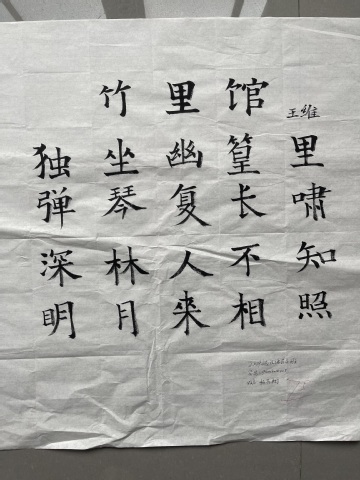 竹里馆
王维
独坐幽篁里
弹琴复长啸
深林人不知
明月來相照